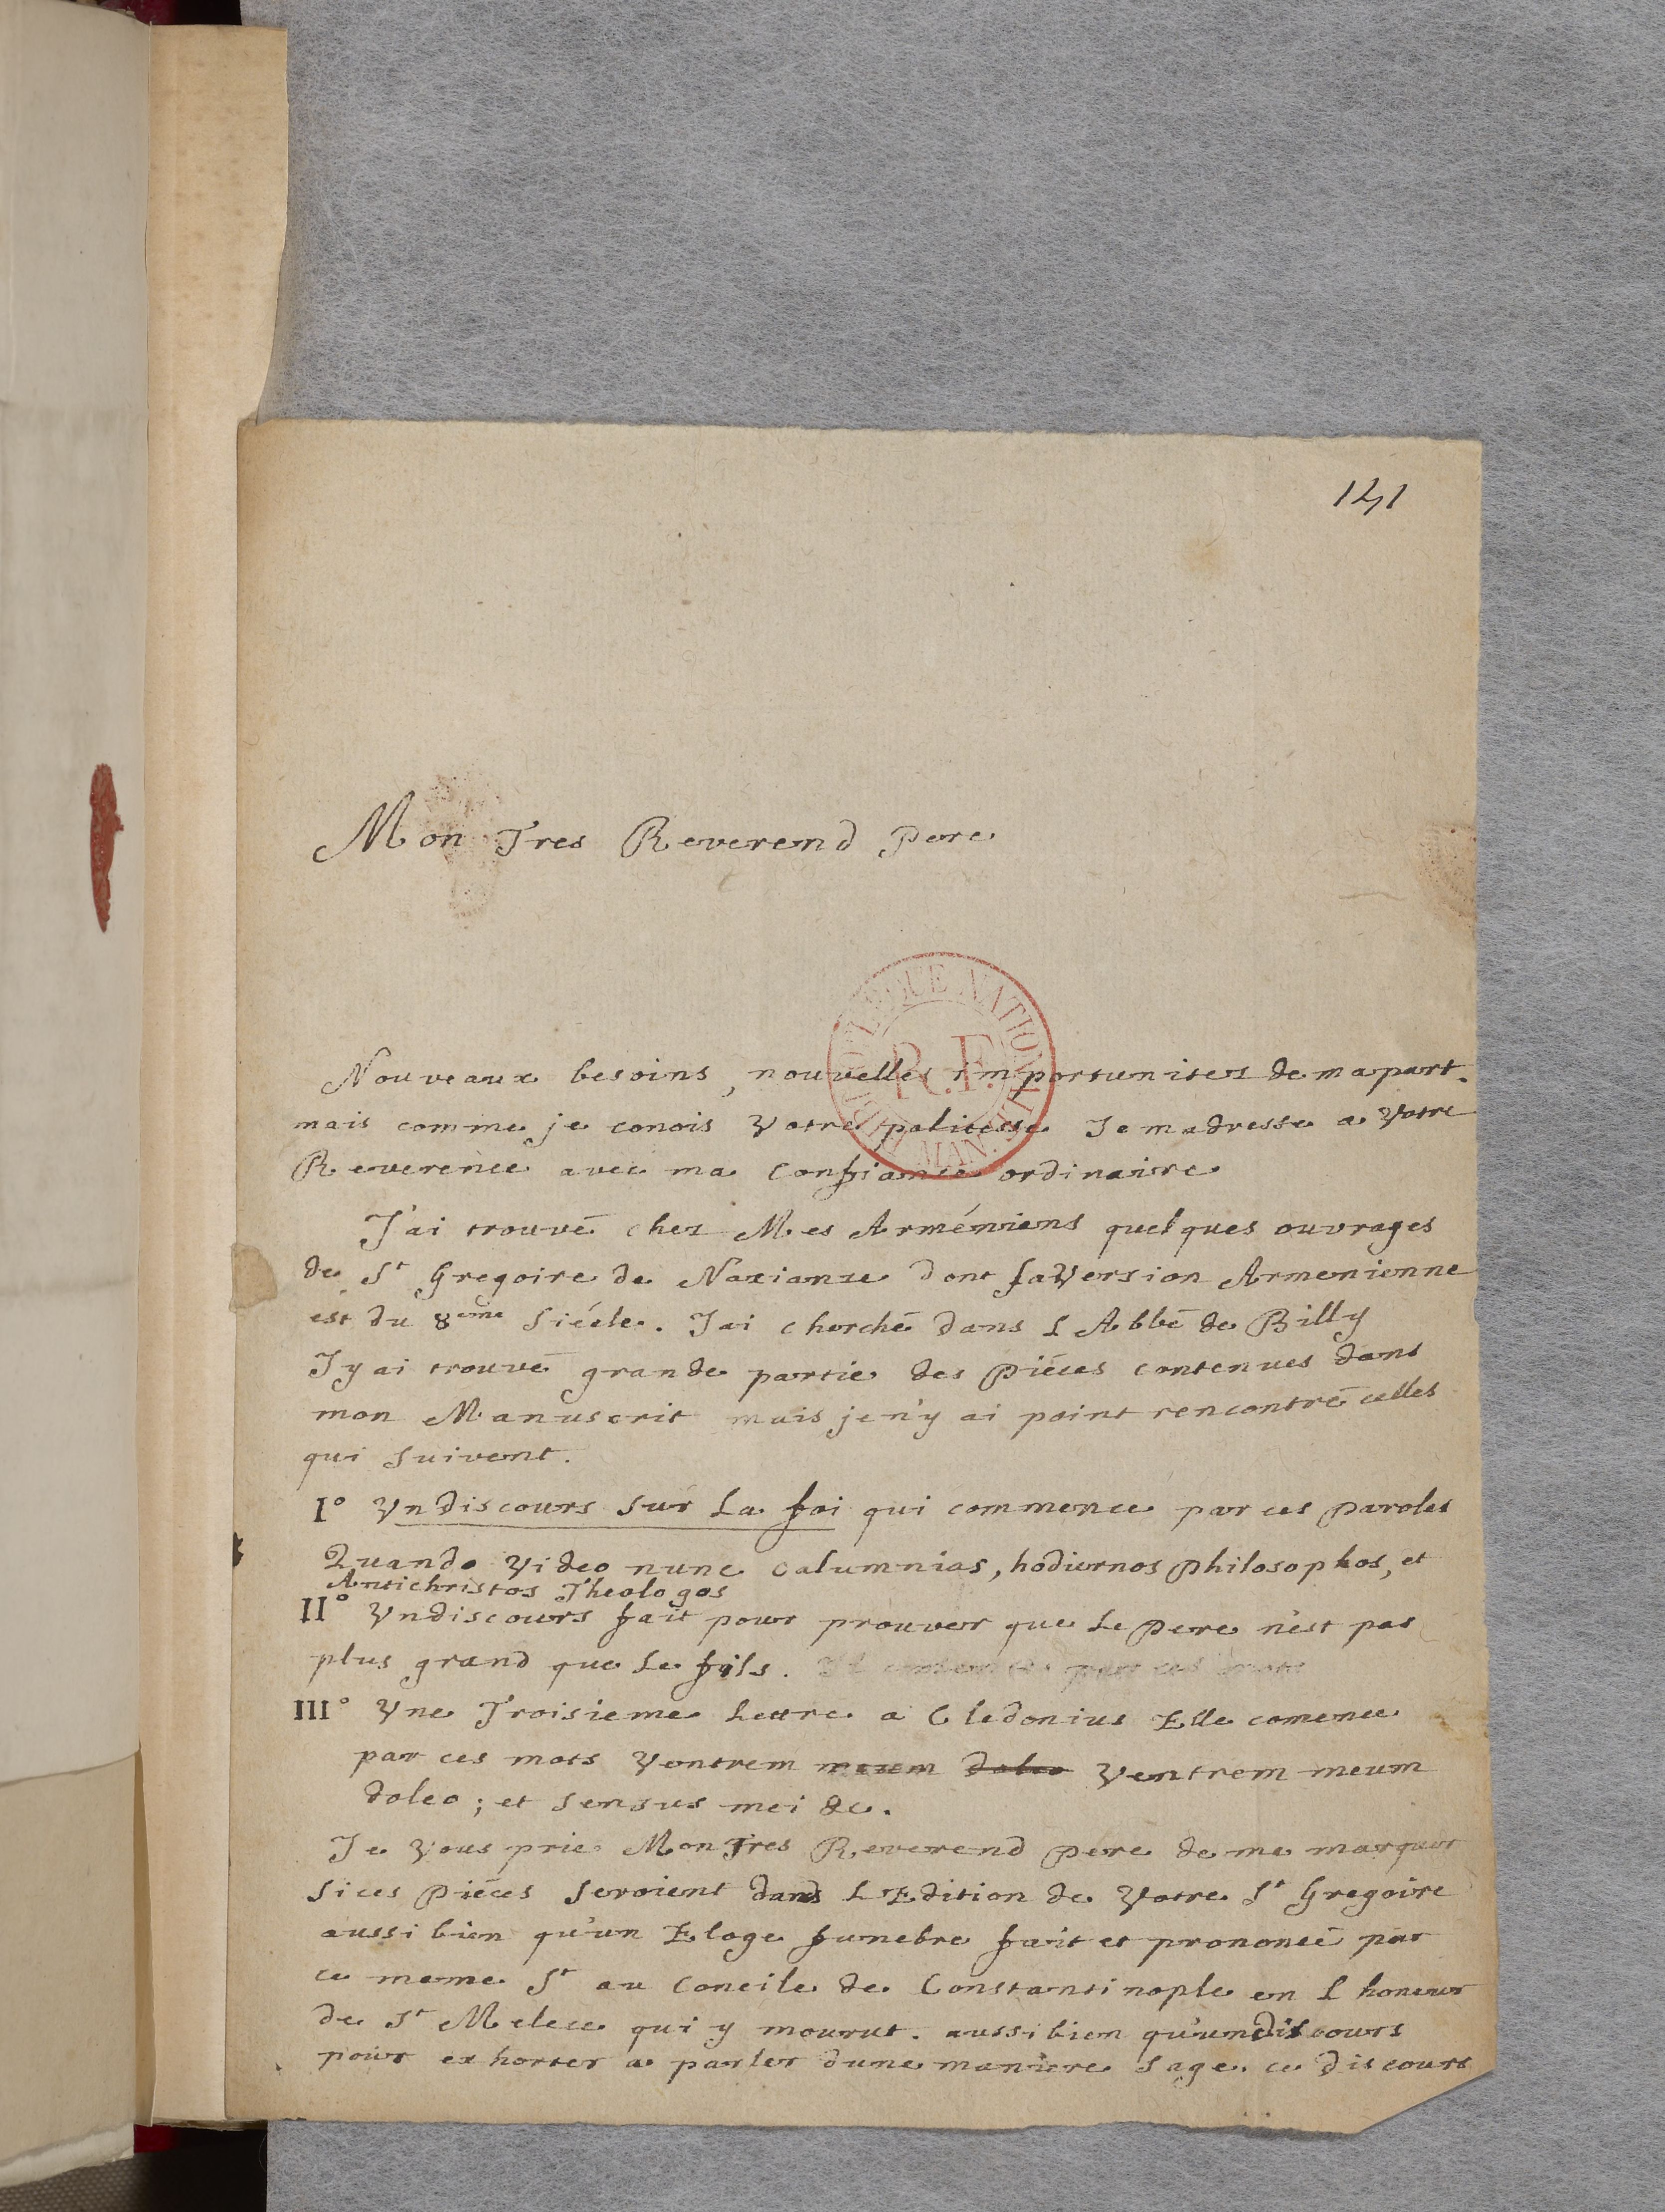 141
Mon Tres Reverend Pere
BIBLIOTHEQUE NATIONALE MAN. R.F.
Nouveaux besoins, nouvelles importunitez de ma part.
mais comme je conois Votre politesse Je madresse a Votre
Reverence avec ma confiance ordinaire
J'ai trouvé chez Mes Arméniens quelques ouvrages
de St Gregoire de Nazianze dont la Version Armenienne
est du 8eme Siécle. J'ai cherché dans L'Abbé de Billy
J'y ai trouvé grande partie des piéces contenues dans
mon Manuscrit mais je n'y ai point rencontré celles
qui suivent.
I° Un discours sur La foi qui commence par ces paroles
Quando Video nunc calumnias, hodiernos philosophos, et
Antichristos Theologos
II° Un discours fait pour prouver que Le pere n'est pas
plus grand que Le fils. par ces mots
III° Une Troisieme Lettre a Cledonius Elle comence
par ces mots Ventrem meum doleo Ventrem meum
doleo; et sensus mei &c.
Je Vous prie Mon Tres Reverend pére de me marquer
Si ces piéces seroient dans L'Edition de Votre St Gregoire
aussi bien qu'un Eloge funebre fait et prononcé par
ce meme St au Concile de Constantinople en L'honeur
de St Melece qui y mourut. aussi bien qu'un discours
pour exhorter a parler d'une maniere sage. ce discours